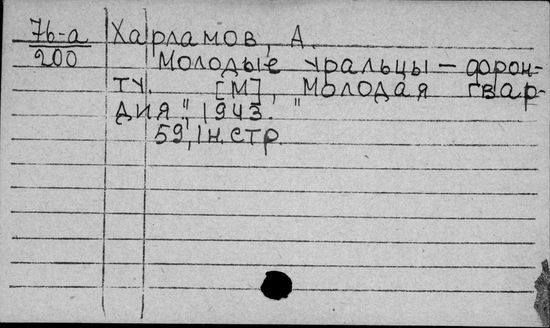 76-а Харламов, А.
200 Молодые уральцы — фрон-
ту. [М], "Молодая гвар-
дия", 1943.
59, 1 н. стр.